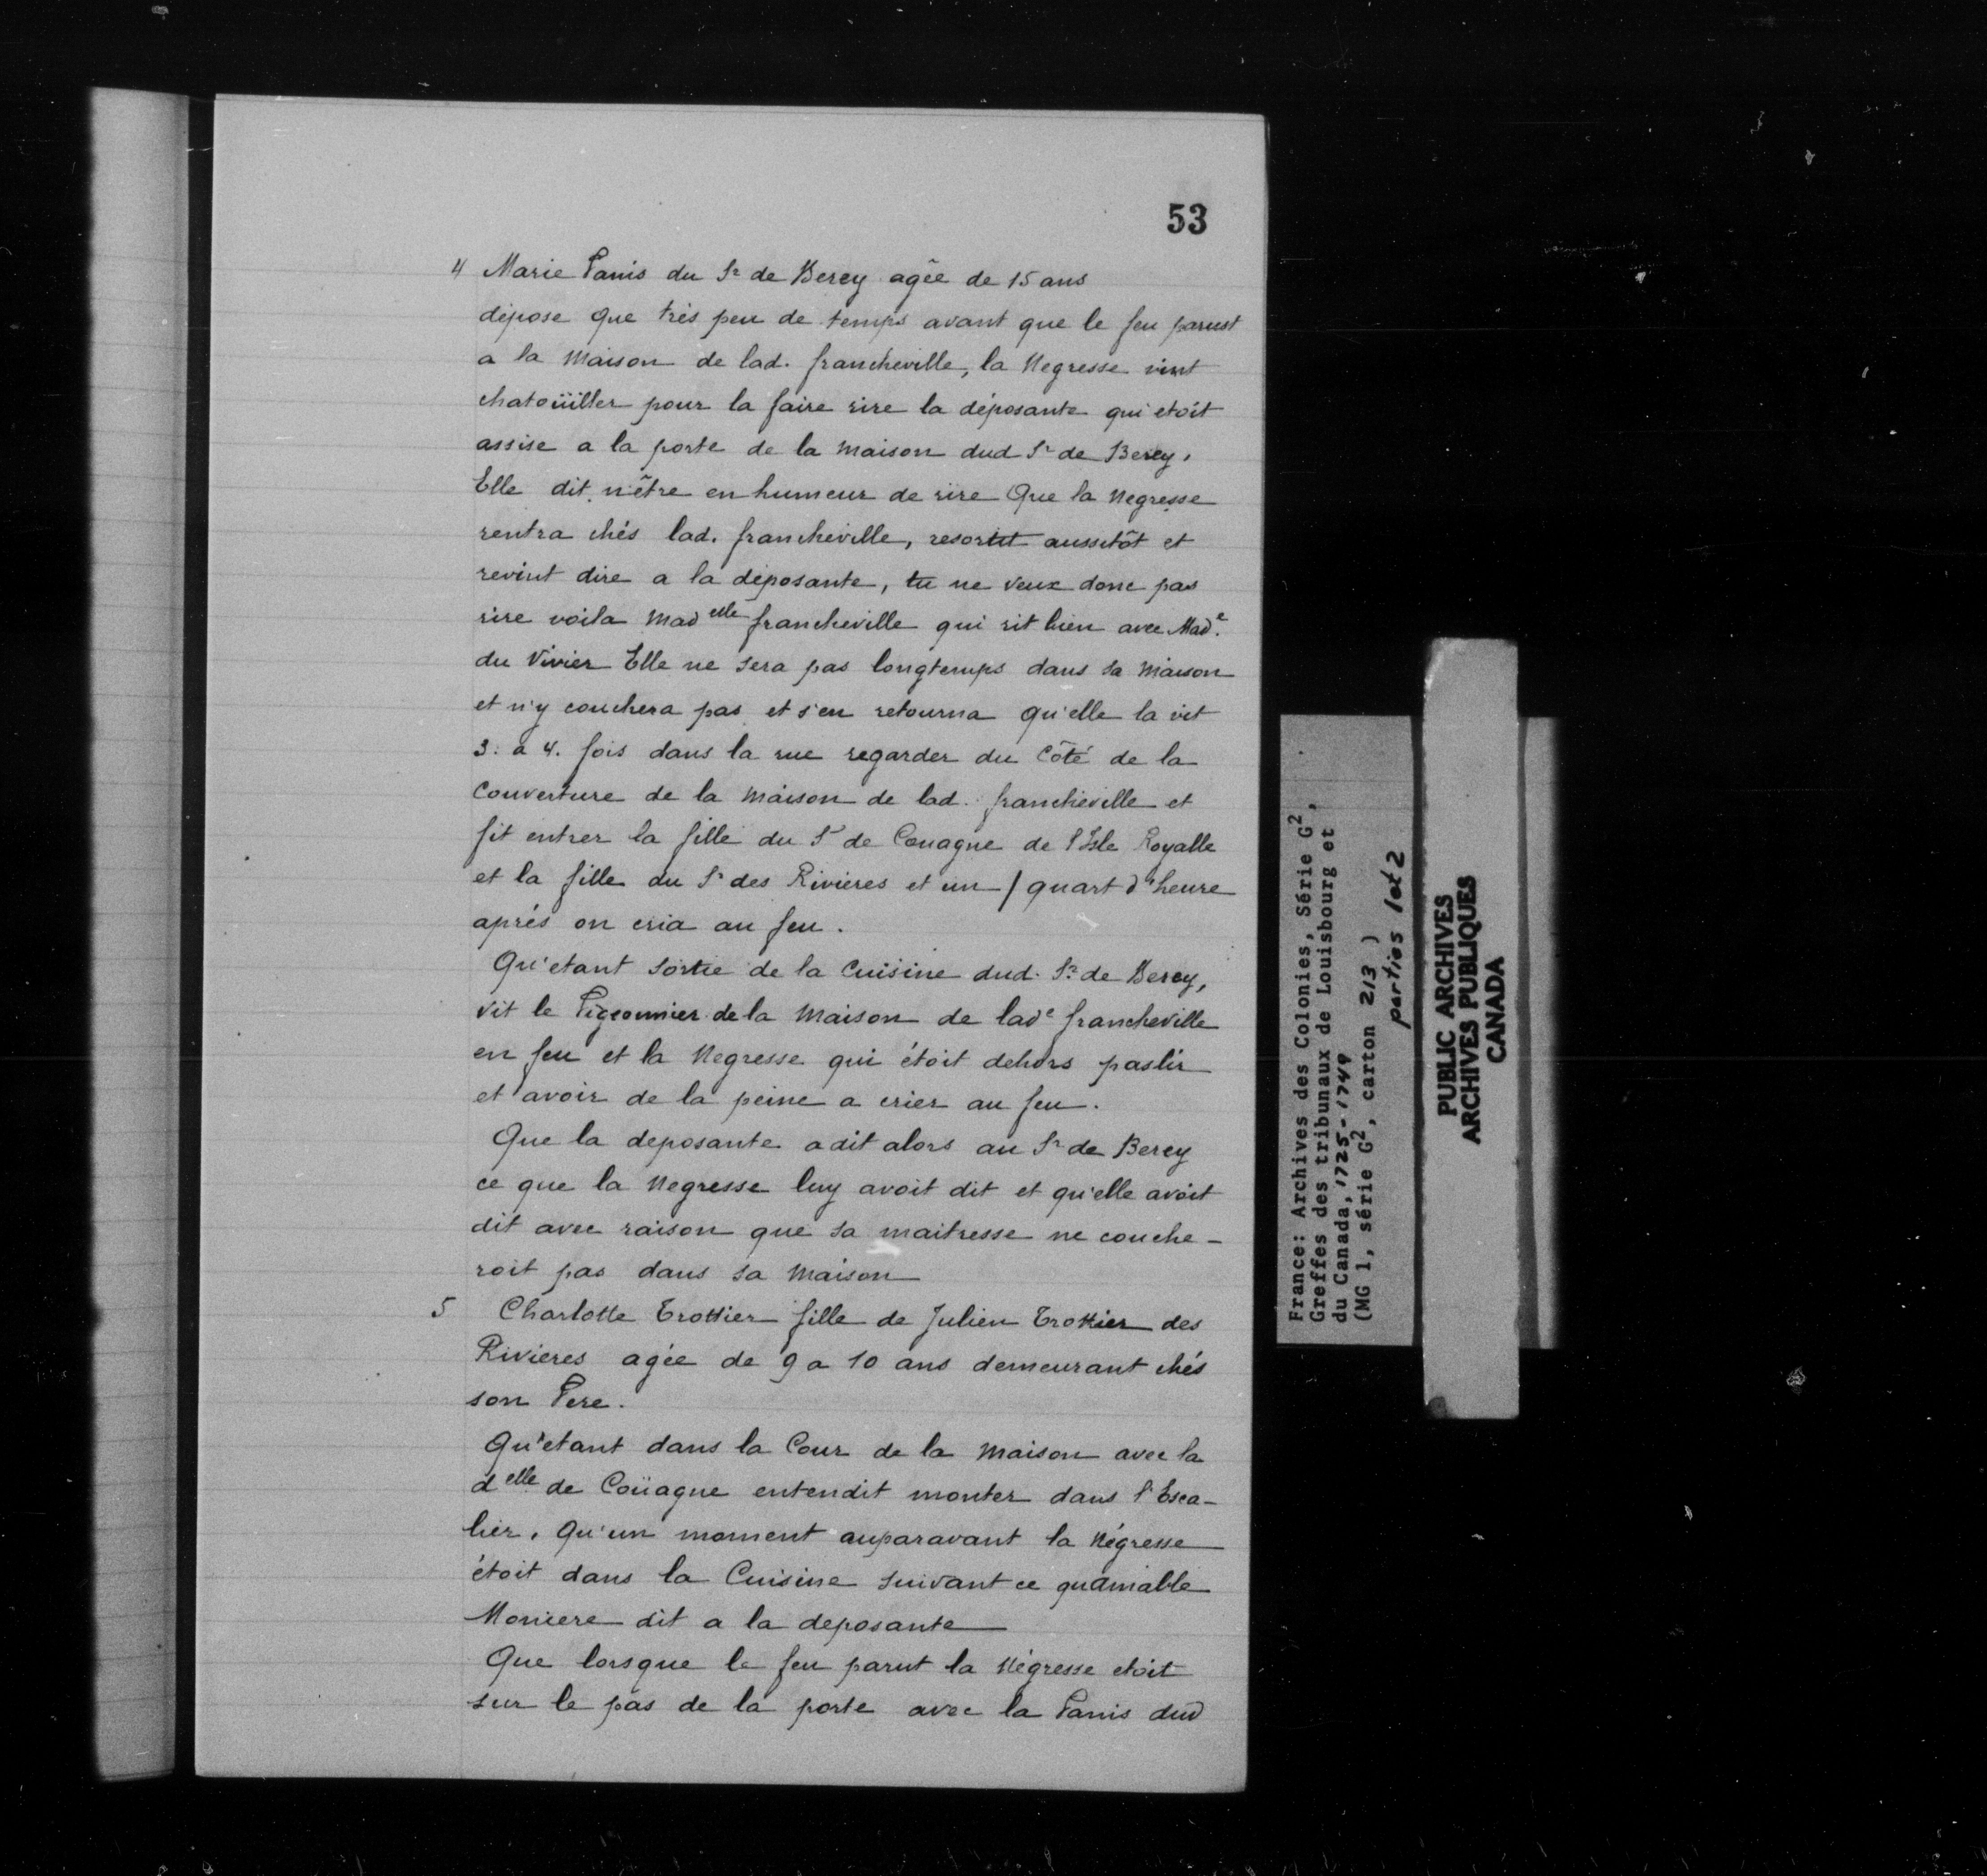 53
4 Marie Panis du Sr de Berey agée de 15 ans
dépose que très peu de temps avant que le feu parust
a la Maison de lad. francheville, la Negresse vint
chatoüiller pour la faire rire la déposante qui etoit
assise a la porte de la Maison dud Sr de Berey,
Elle dit n'être en humeur de rire Que la Negresse
rentra chés lad. francheville, resortit aussitôt et
revint dire a la déposante, tu ne veux donc pas
rire voila Madelle francheville qui rit bien avec Made.
du Vivier Elle ne sera pas longtemps dans sa Maison
et n'y couchera pas et s'en retourna qu'elle la vit
3. a 4. fois dans la rue regarder du Côté de la
Couverture de la Maison de lad. francheville et
fit entrer la fille du Sr de Couagne de l'Isle Royalle
et la fille du Sr des Rivieres et un / quart d'heure
aprés on cria au feu.
Qu'etant sortie de la Cuisine dud. Sr de Berey,
vit le Pigeonnier de la Maison de lade francheville
en feu et la Negresse qui étoit dehors paslir
et avoir de la peine a crier au feu.
Que la deposante a dit alors au Sr de Berey
ce que la Negresse luy avoit dit et qu'elle avoit
dit avec raison que sa maitresse ne couche-
roit pas dans sa Maison
5 Charlotte Trottier fille de Julien Trottier des
Rivieres agée de 9 a 10 ans demeurant chés
son Pere.
Qu'etant dans la Cour de la Maison avec la
delle de Coüagne entendit monter dans l'Esca-
lier, Qu'un moment auparavant la Négresse
étoit dans la Cuisine suivant ce qu'amable
Moniere dit a la deposante
Que lorsque le feu parut la Négresse etoit
sur le pas de la porte avec la Panis dud
France: Archives des Colonies, Série G2,
Greffes des tribunaux de Louisbourg et
du Canada, 1725-1749
(MG 1, série G2, carton 213)
parties 1 et 2
PUBLIC ARCHIVES
ARCHIVES PUBLIQUES
CANADA